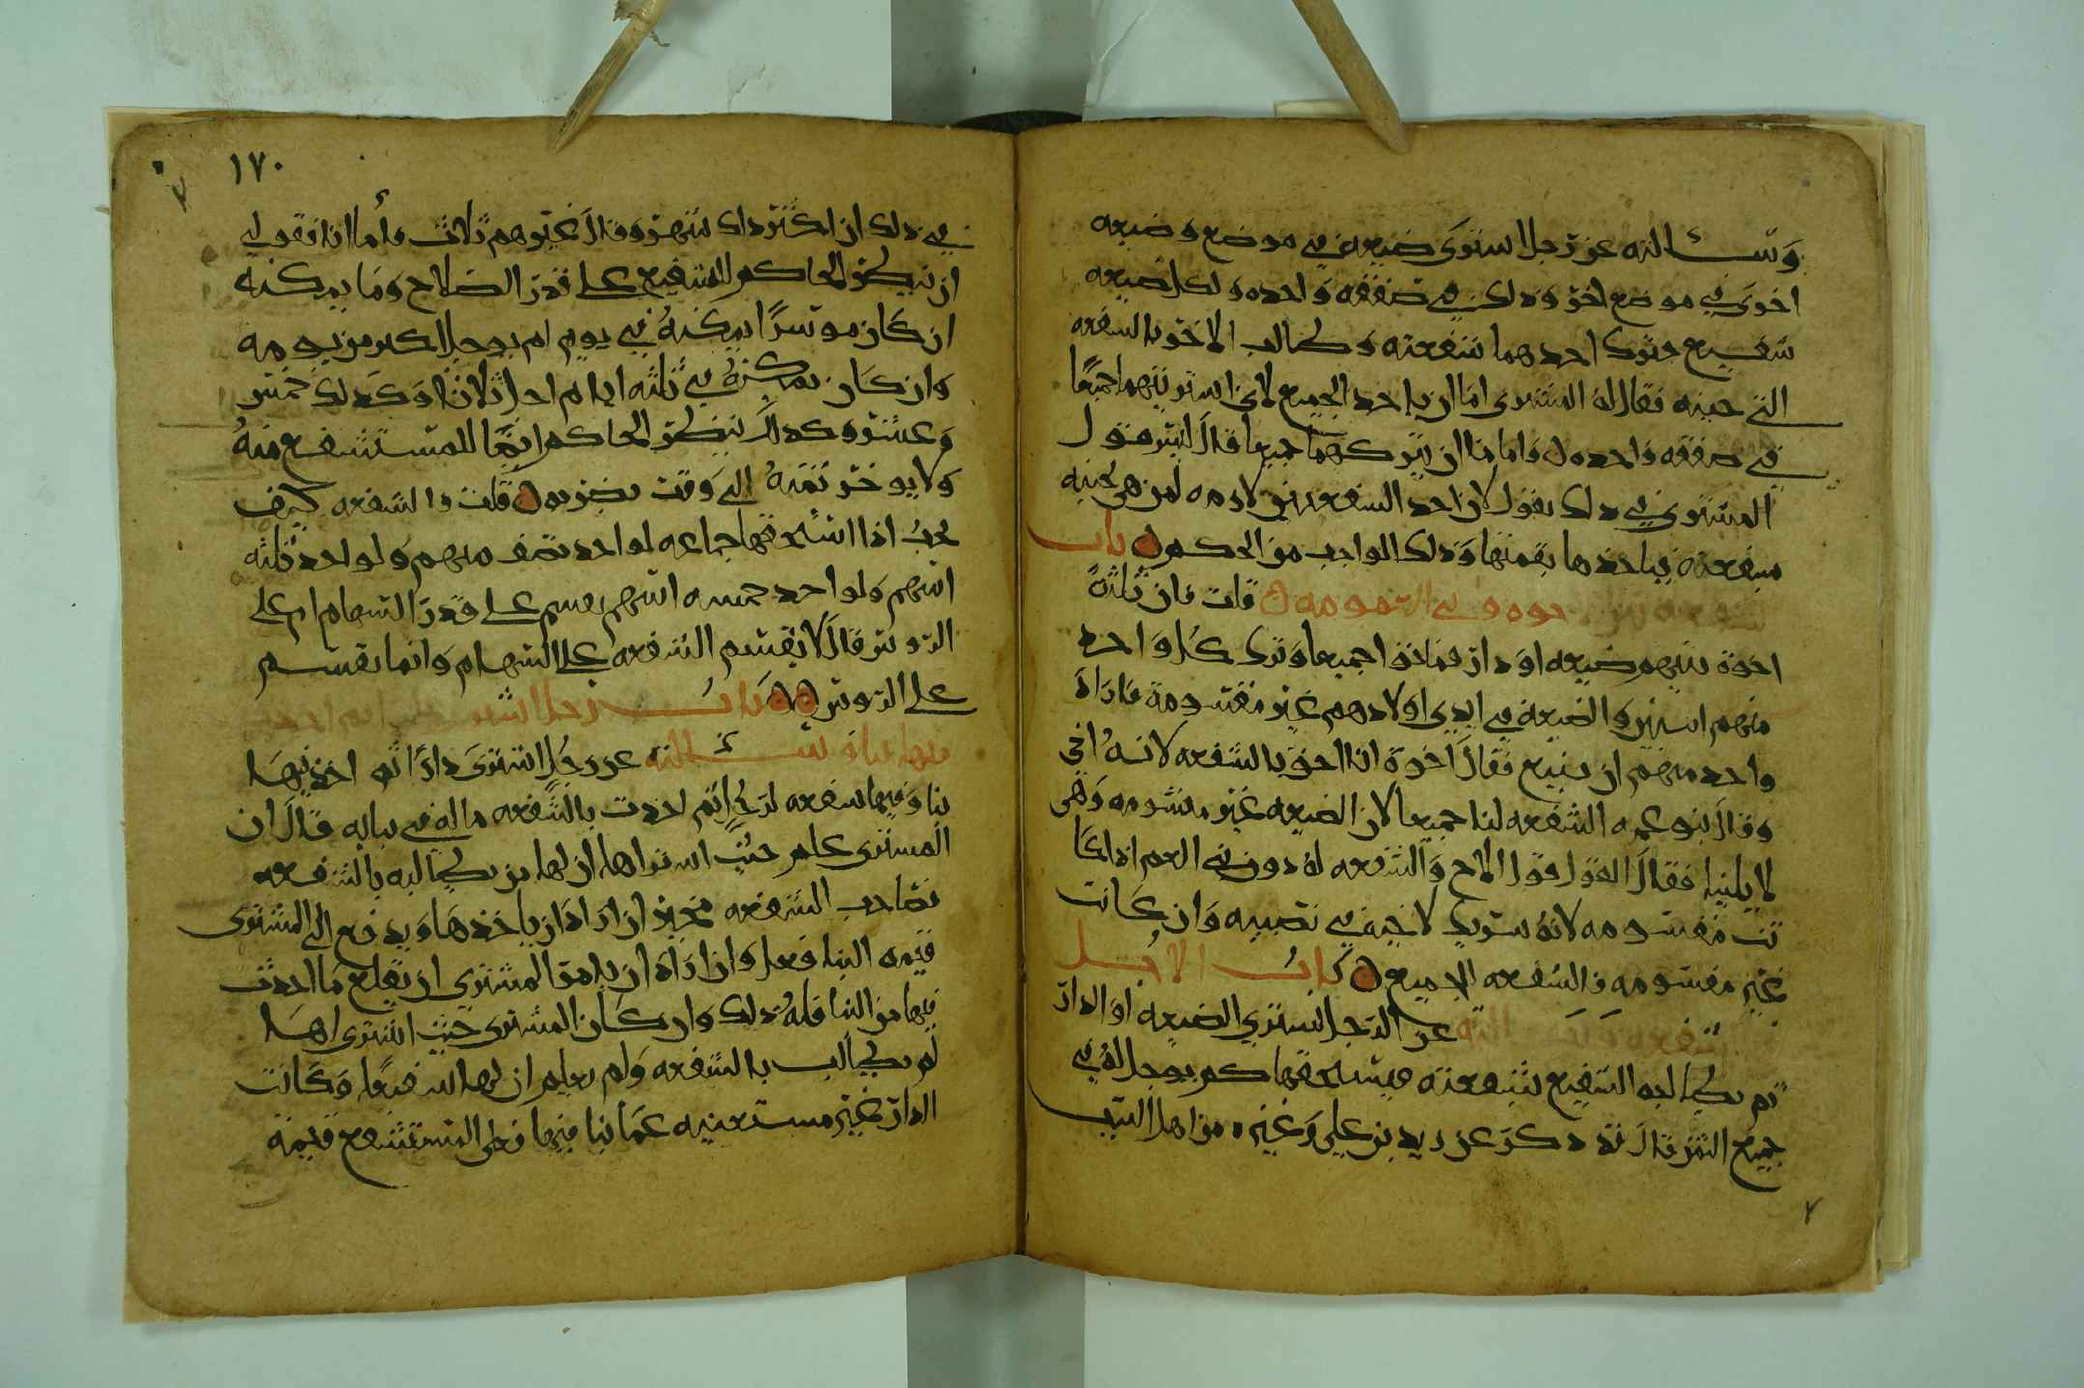 وسئالته عن رجل اشترى ضيعة في موضع وضيعه
اخرى في موضع اخر وذلك في صفقه واحده ولكل ضيعه
شفيع فترك احدهما شفعته وطالب الاخر بالشفعه
التي جنبه فقال له المشتري اما ان ياخذ الجميع لاني اشتريتهما جميعا
في صفقه واحده واما ان يتركهما جميعا قال ليس قول
المشتري في ذلك بقول لان احد الشفعتين لازمه لمن هي بجنبه
بشفعته فياخذها بقيمتها وذلك الواجب من الحكم باب
في العمومه قلت فان ثلثة
اخوة بينهم ضيعه او دار فماتوا جميعا وترك كل واحد
منهم ابنين والضيعة في ايدي اولادهم غير مقسومة فاراد
واحد منهم ان يبيع فقال اخوة انا احق بالشفعه لانه اخي
وقال بنو عمه الشفعه لنا جميعا لان الضيعه غير مقسومه وهي
لابائنا فقال القول قول الاخ والشفعه له دون بني العم اذا كا
نت مقسومه لانه شريك لاخيه في نصيبه وان كانت
غير مقسومه فالشفعه للجميع باب الاجل
في الشفعه وسئالته عن الرجل يشتري الضيعه او الدار
ثم يطالبه الشفيع بشفعته فيستحقها كم يوجل له في
جميع الثمن قال قد ذكر عن زيد بن علي وغيره من اهل البيت
١٧٠
في ذلك ان اكثر ذلك شهر وقال غيرهم ثلاث واما انا فقولي
ان ينظر الحاكم للشفيع على قدر الصلاح وما يمكنه
ان كان موسرا يمكنه في يوم لم يوجل اكثر من يومه
وان كان يمكنه في ثلثه ايام اجل ثلاثا وكذلك خمس
وعشر وكذلك ينظر الحاكم ايضا للمستشفع منه
ولا يوخر ثمنه الى وقت يضر به قلت فالشفعه كيف
تجب اذا استحقها جماعه لواحد نصف سهم ولواحد ثلثه
اسهم ولواحد خمسه اسهم يقسم على قدر السهام ام على
الروس قال لا يقسم الشفعه على السهام وانما يقسم
على الروس باب رجل اشترى
فيها بناء وسئالته عن رجل اشترى دارا ثم احدث فيها
بنا وفيها شفعه لرجل ثم اخذت بالشفعه ماله في بنايه قال ان
المشتري علم حيث اشتراها ان لها من يطالبه بالشفعه
فصاحب الشفعه مخير ان اراد ان ياخذها ويدفع الى المشتري
قيمه البنا فعل وان اراد ان يامر المشتري ان يقلع ما احدث
فيها من البنا فله ذلك وان كان المشتري حيث اشتراها
لم يطالب بالشفعه ولم يعلم ان لها شفيعا وكانت
الدار غير مستغنيه عما بنا فيها فعلى المستشفع قيمة